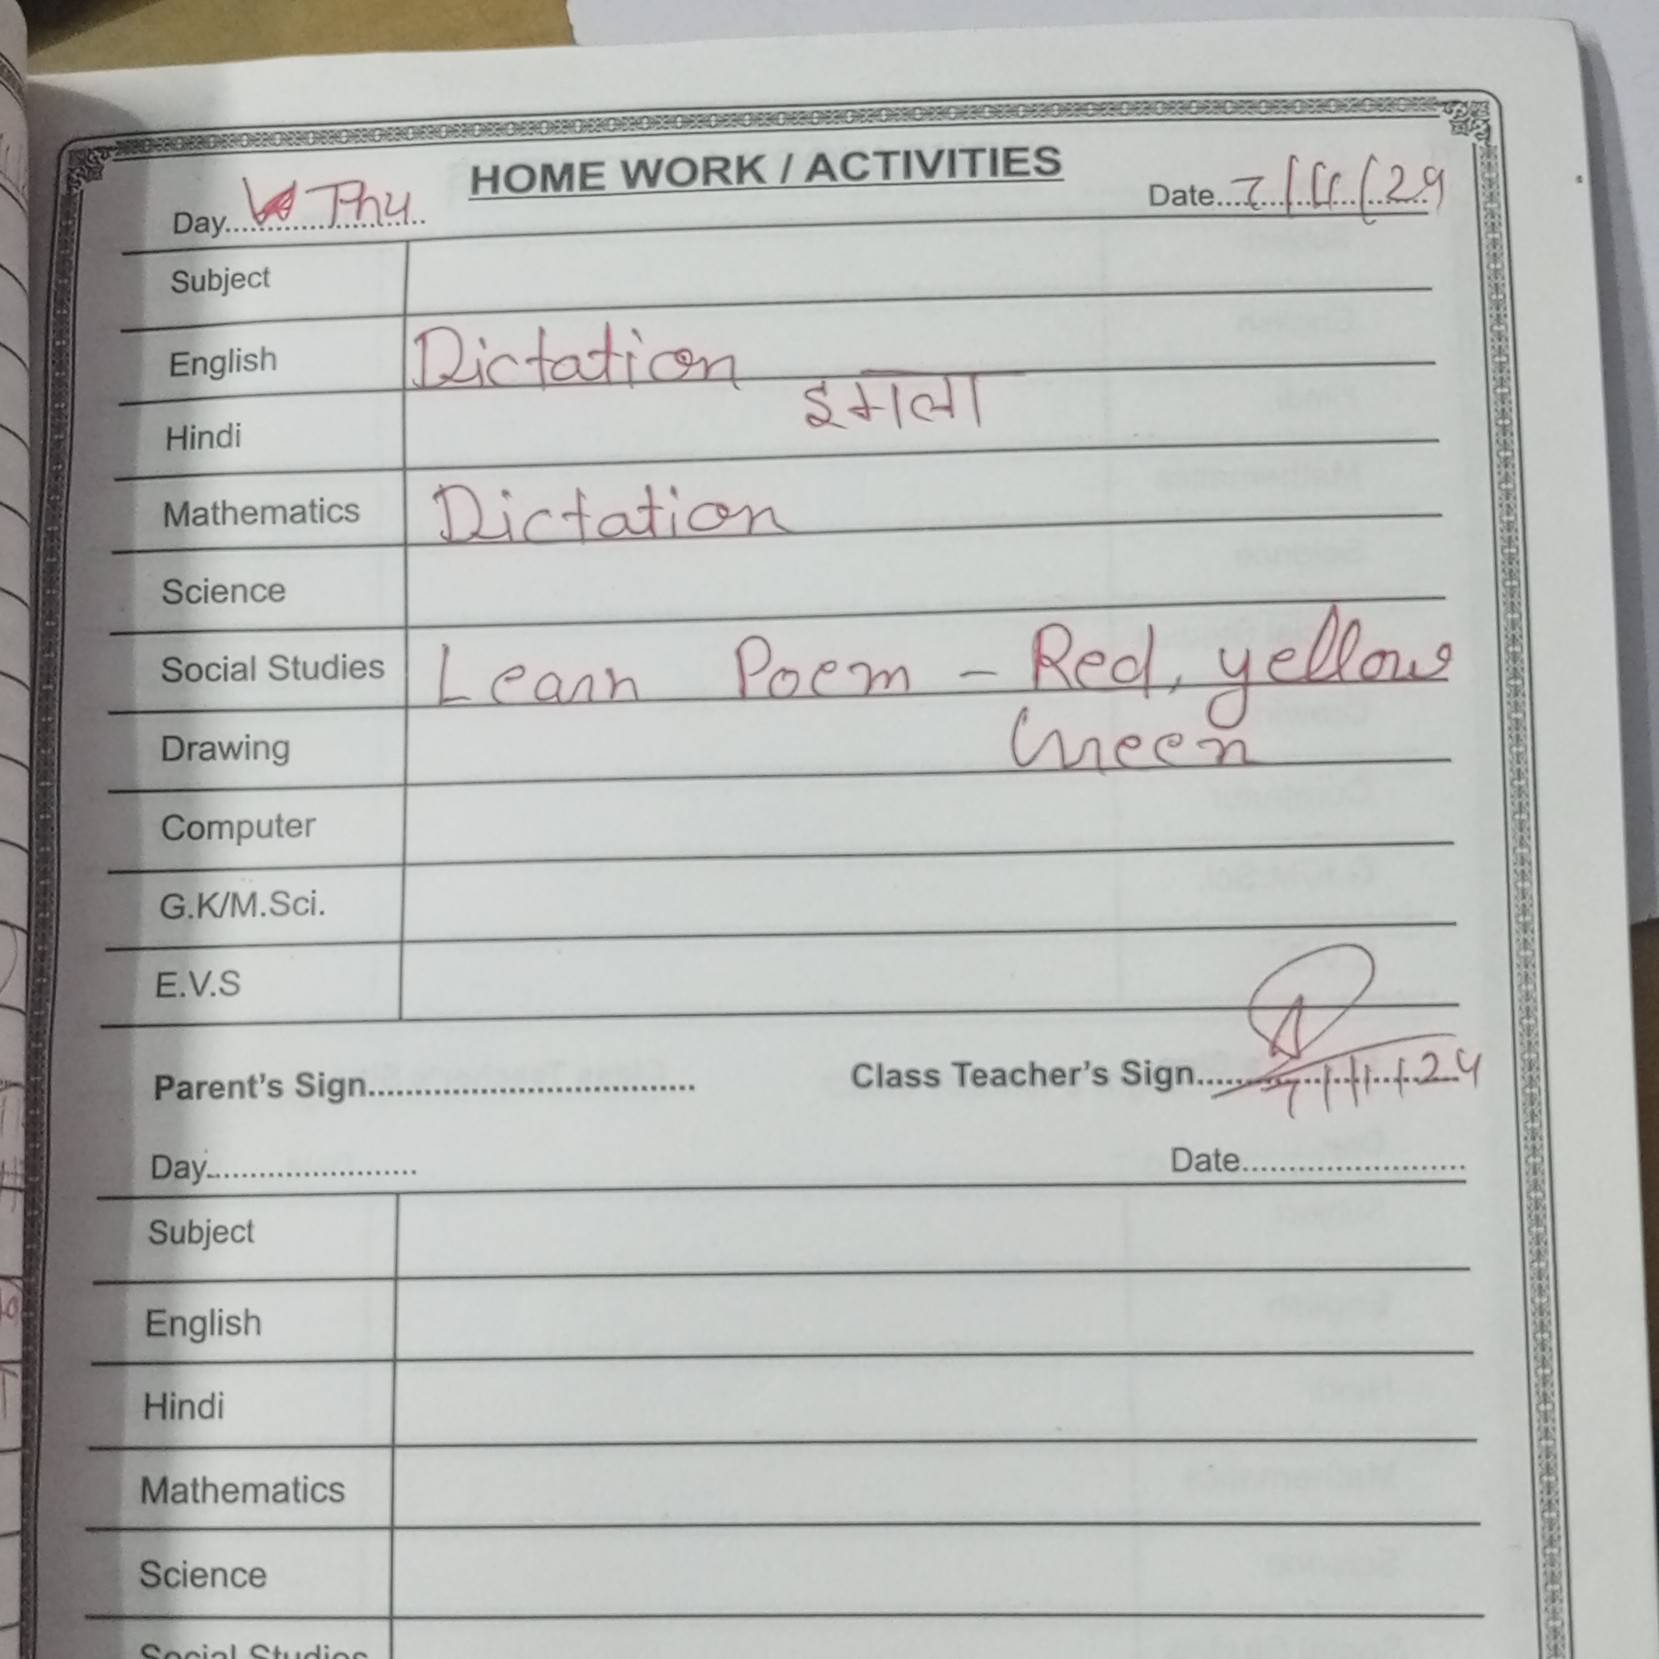 HOME WORK / ACTIVITIES
Day Thu Date 7/11/24
Subject
English Dictation
Hindi इमला
Mathematics Dictation
Science
Social Studies Learn Poem - Red, yellow
Green
Drawing
Computer
G.K/M.Sci.
E.V.S
Parent's Sign Class Teacher's Sign 7/11/24
Day Date
Subject
English
Hindi
Mathematics
Science
Social Studies